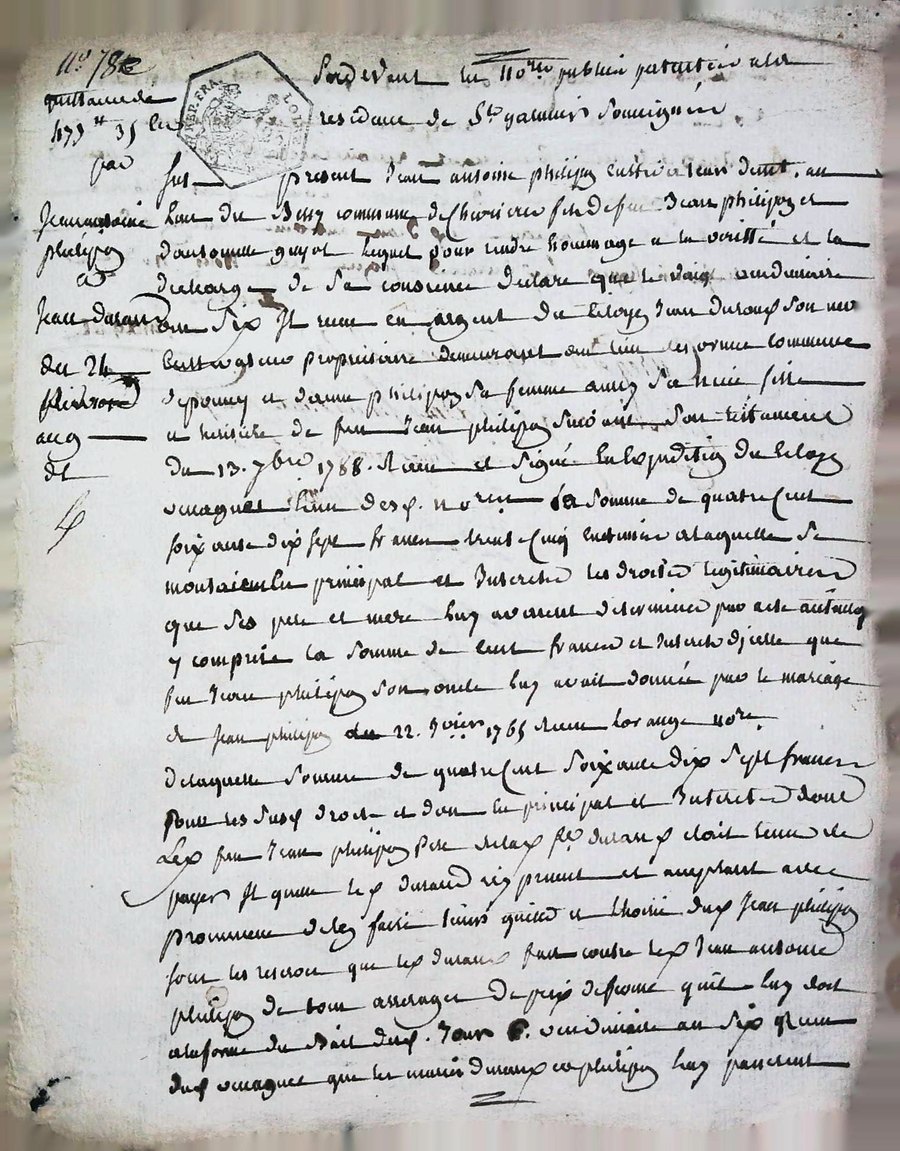 n.° 78
quittance de
477 # 35 ce
par
Jean antoine
philipon
a
Jean durand
du 24
an 9
de
REP. FRA.
par devant le no.re public patenté a la
residence de St galmier soussigné
fut present Jean antoine philipon cultivateur demt. au
lieu du commune de Chevrieres fils de feu Jean philipon et
d'antoinette guyot lequel pour rendre hommage a la verité et la
decharge de sa conscience declare que le vendemiaire
an six Il recut en argent du Citoyen Jean durand son neveu
proprietaire demeurant au lieu des commune
de et philipon sa femme sa niece fille
et heritiere de feu Jean philipon suivant son testament
du 13. 7bre 1788. Recu et signé l'expedition du Citoyen
no.re la somme de quatre Cent
soixante dix sept francs trente Cinq centimes a laquelle se
montaient le principal et Interets des droits legitimaires
que ses pere et mere luy avaient determinés par acte
y comprise la somme de cent francs et Interets d'icelle que
feu Jean philipon son oncle luy avait donnée par le mariage
de Jean philipon du 22. Jvier 1765 Recu lorange no.re
de laquelle somme de quatre Cent soixante dix sept francs
pour les susd droits et don en principal et Interets dont
led feu Jean philipon Pere de lad fe durand etait tenu de
payer Il quitte le d durand icy present et acceptant avec
promesse de l'en faire tenir quitte et l'hoirie dud Jean philipon
sous les reserves que led durand fait contre led Jean antoine
philipon de tous arrerages de prix de ferme qu'il luy doit
a la forme du Bail dud. Jour 6. vendemiaire an six Recu
dud que les mariés durand et philipon luy passerent